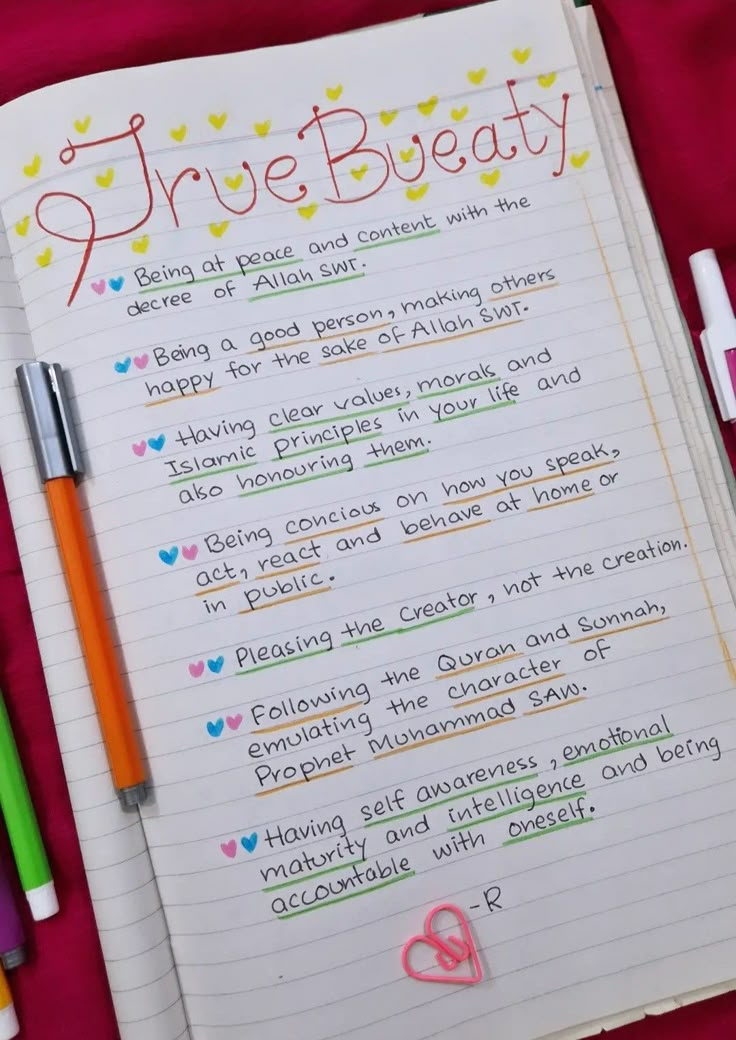 True Bueaty
Being at peace and content with the
decree of Allah SWT.
Being a good person, making others
happy for the sake of Allah SWT.
Having clear values, morals and
Islamic principles in your life and
also honouring them.
Being concious on how you speak,
act, react and behave at home or
in public.
Pleasing the Creator, not the creation.
Following the Quran and Sunnah,
emulating the character of
Prophet Muhammad SAW.
Having self awareness, emotional
maturity and intelligence and being
accountable with oneself.
-R